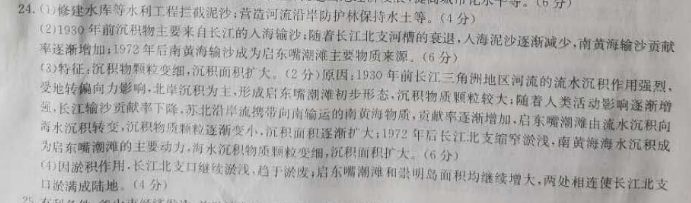 24.(1)修建水库等水利工程拦截泥沙;营造河流沿岸防护林保持水土等。(4分)
(2)1930年前沉积物主要来自长江的入海输沙;随着长江北支河槽的衰退,入海泥沙逐渐减少,南黄海输沙贡献
率逐渐增加;1972年后南黄海输沙成为启东嘴潮滩主要物质来源。(6分)
(3)特征:沉积物颗粒变细,沉积面积扩大。(2分)原因:1930年前长江三角洲地区河流的流水沉积作用强烈,
受地转偏向力影响,北岸沉积为主,形成启东嘴潮滩初步形态,沉积物质颗粒较大;随着人类活动影响逐渐增
强,长江输沙贡献率下降,苏北沿岸流携带向南输运的南黄海物质,贡献率逐渐增加,启东嘴潮滩由流水沉积向
海水沉积转变,沉积物质颗粒逐渐变小,沉积面积逐渐扩大;1972年后长江北支缩窄淤浅,南黄海海水沉积成
为启东嘴潮滩的主要动力,海水沉积物质颗粒变细,沉积面积扩大。(6分)
(4)因淤积作用,长江北支口继续淤浅,趋于淤废;启东嘴潮滩和崇明岛面积均继续增大,两处相连使长江北支
口淤满成陆地。(4分)